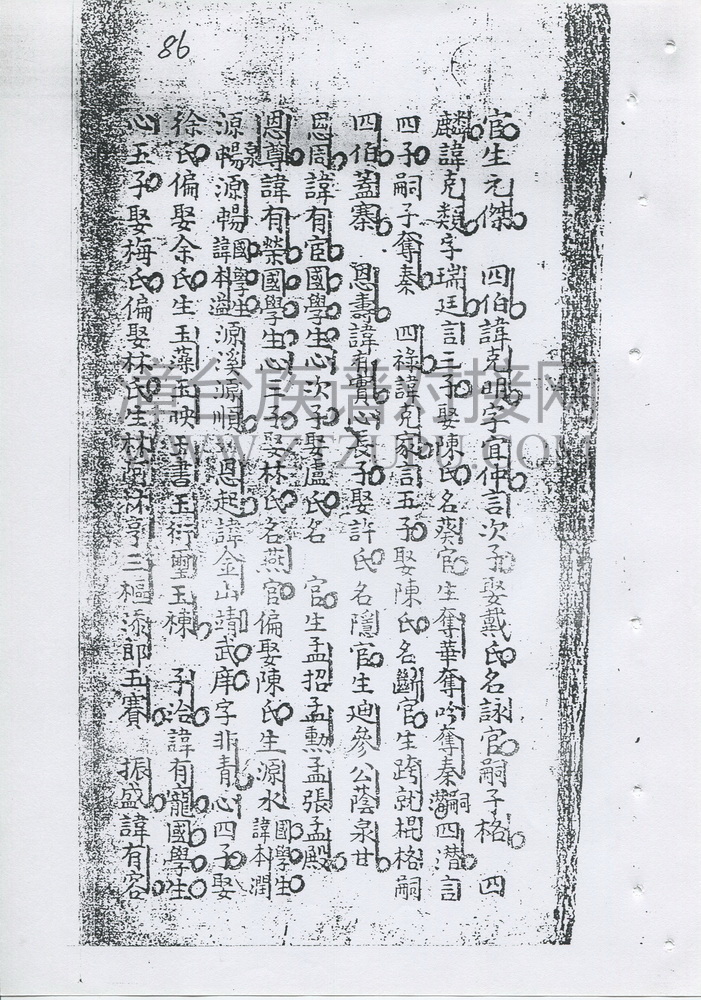 86
官生元傑 四伯諱克明字宜仲言次子娶戴氏名詠官嗣子格 四
麟諱克類字瑞廷言三子娶陳氏名葵官生奪華奪吟奪秦嗣四潛言
四子嗣子奪秦 四祿諱克家言五子娶陳氏名斷官生跨就棍格嗣
四伯蓋寨 恩壽諱有實心長子娶許氏名隱官生廸參公蔭泉甘
恩周諱有宦國學生心次子娶盧氏名 官生孟招孟勲孟張孟殿
恩尊諱有榮國學生心三子娶林氏名燕官偏娶陳氏生源水諱本潤國學生
源暢源暢諱本溢國學生源溪源順 恩起諱金山靖武庠字非青心四子娶
徐氏偏娶余氏生玉藻玉映玉書玉衍璽玉棟 子治諱有寵國學生
心五子娶梅氏偏娶林氏生林 沐亭三樞添郎五賽 振盛諱有容
漳台族譜对接网
WWW.ZTZUPU.COM